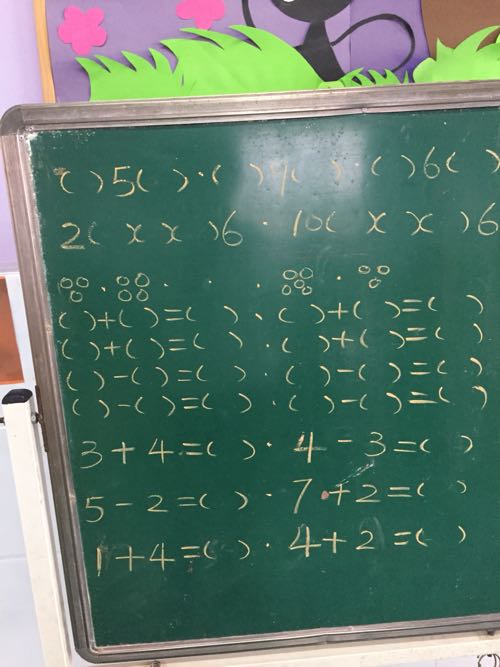 ( ) 5 ( ) · ( ) 4 ( ) · ( ) 6 ( )
2 ( x x ) 6 · 10 ( x x ) 6
( ) + ( ) = ( ) · ( ) + ( ) = ( )
( ) + ( ) = ( ) · ( ) + ( ) = ( )
( ) - ( ) = ( ) · ( ) - ( ) = ( )
( ) - ( ) = ( ) · ( ) - ( ) = ( )
3 + 4 = ( ) · 4 - 3 = ( )
5 - 2 = ( ) · 7 + 2 = ( )
1 + 4 = ( ) · 4 + 2 = ( )